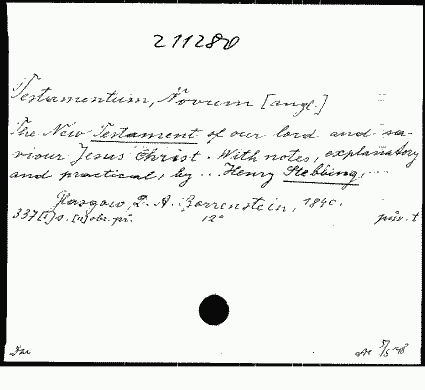 211280
Testamentum, Novum [angl.]
The New Testament of our lord and sa-
viour Jesus Christ. With notes, explanatory
and practical, by ... Henry Stebbing.
Glasgow, A. Borrenstein, 1840.
337[1] s. [1] obr. př. 12° pův. t
Dar 5/5 48